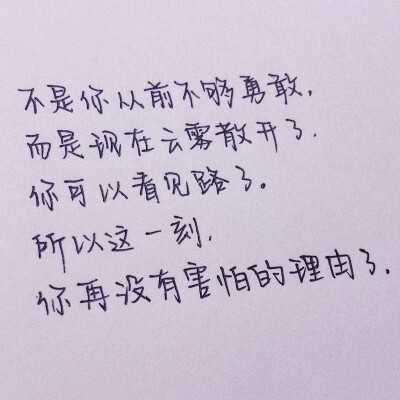 不是你从前不够勇敢，
而是现在云雾散开了．
你可以看见路了。
所以这一刻，
你再没有害怕的理由了．